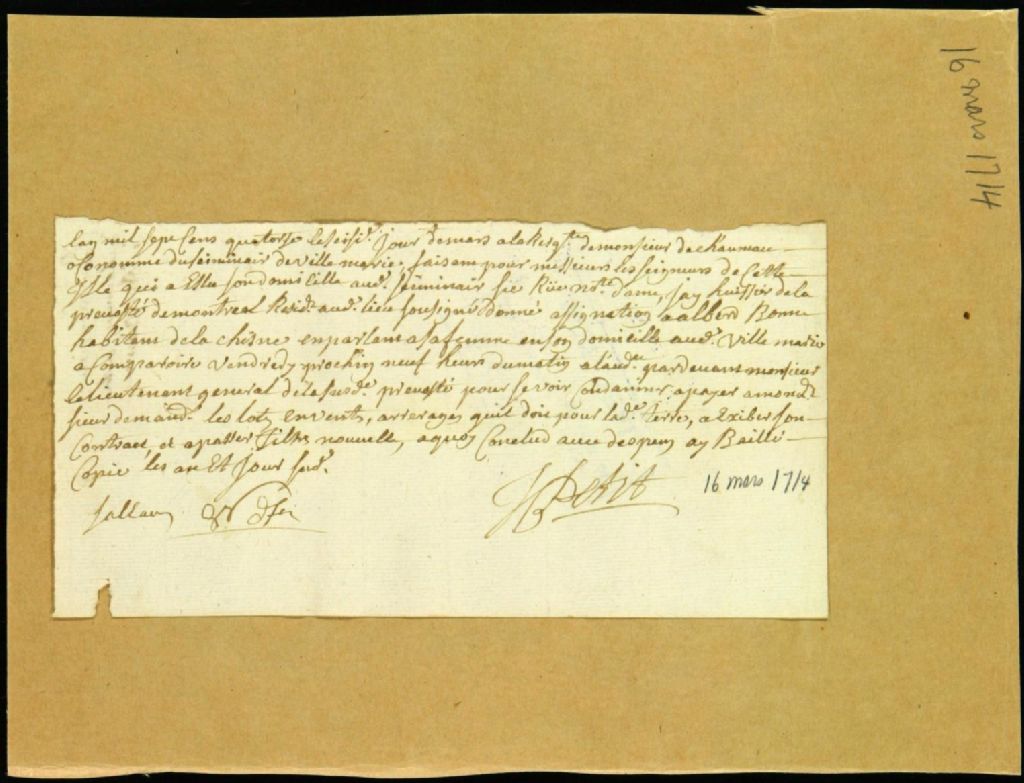 lan mil sept cens quatorze le seizie. Jour de mars a la Requte de monsieur de
oConomme du Seminair de ville marie, faisant pour messieurs les seigneurs de Cette
Isle qui a Ellu son domicille aud. seminair sie Rüe notre dame, jay huissier de la
prevosté de montreal Residt. aud. lieu sousigné donné assignation a alberd Bonne
habitant de la chisne en parlant a sa femme en son domicille aud. Ville marie
a Comparoire vendredy prochin neuf heure du matin a laude. pardevant monsieur
le lieutenant general de la susde. prevosté pour se voir Condamner a payer a mond
sieur demandr. les lots en vents, arrerages quil doit pour lade. terre, a Exiber son
Contract, et a passer Tiltre nouvelle, a quoy Conclud avec despens ay Baillé
Copie les an Et Jour susd.
JPetit
16 mars 1714
16 mars 1714